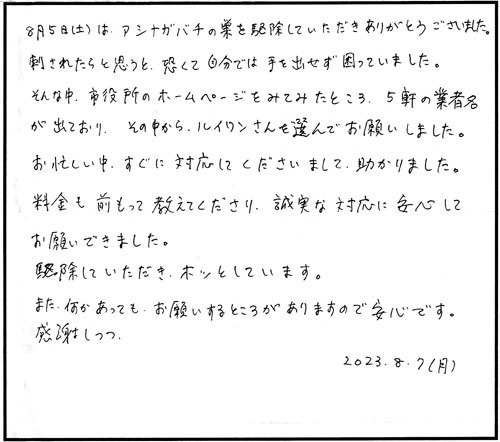 8月5日(土)は、アシナガバチの巣を駆除していただきありがとうございました。
刺されたらと思うと、恐くて自分では手を出せず困っていました。
そんな中、市役所のホームページをみてみたところ、5軒の業者名
が出ており、その中から、ルイワンさんを選んでお願いしました。
お忙しい中、すぐに対応してくださいまして、助かりました。
料金も前もって教えてくださり、誠実な対応に安心して
お願いできました。
駆除していただき、ホッとしています。
また、何かあっても、お願いするところがありますので安心です。
感謝しつつ、
2023.8.7(月)